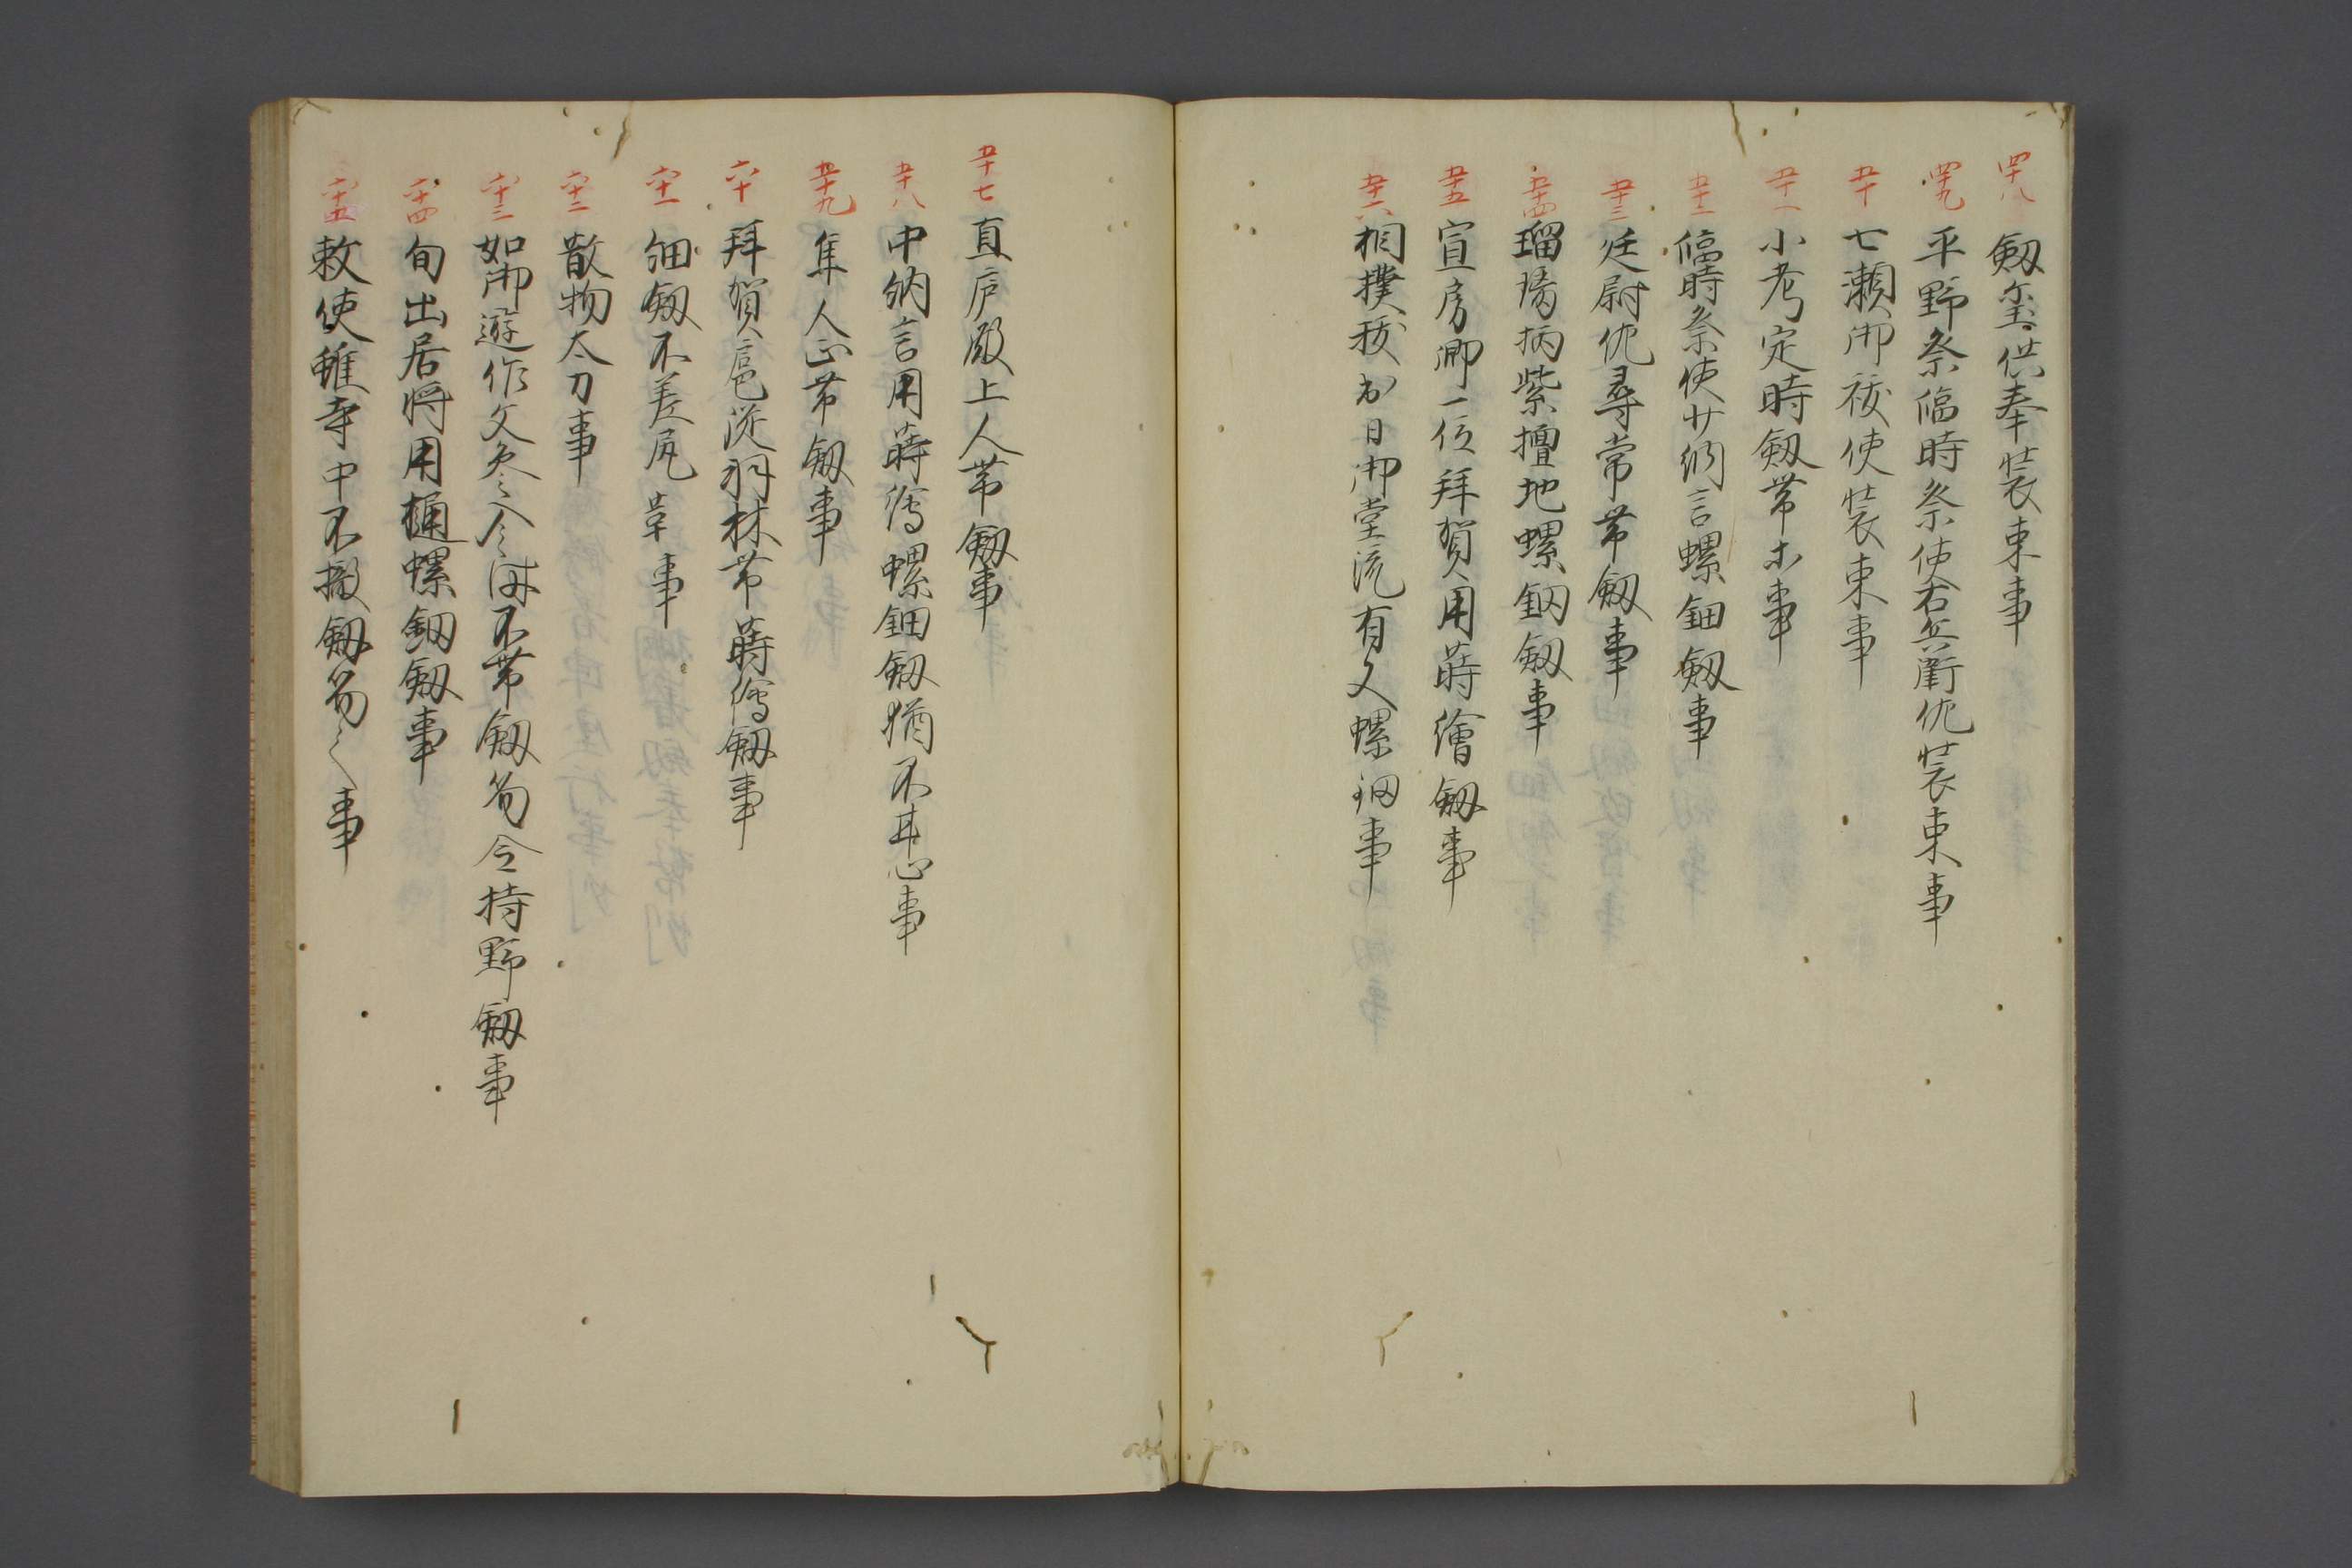 四十八 剱璽供奉装束事
四十九 平野祭臨時祭使右兵衛佐装束事
五十 七瀬御祓使装束事
五十一 小考定時剱帯木事
五十二 臨時祭使少納言螺鈿剱事
五十三 廷尉佐尋常帯剱事
五十四 瑠璃柄紫檀地螺鈿剱事
五十五 宣房卿一位拝賀用蒔繪剱事
五十六 相撲抜出日御堂流有文螺鈿事
五十七 直庐殿上人帯剱事
五十八 中納言用蒔繪螺鈿剱猶不甘心事
五十九 隼人正帯剱事
六十 拝賀扈従羽林帯蒔繪剱事
六十一 細剱不差尻草事
六十二 散物太刀事
六十三 如御遊作文参々会時不帯剱笏令持野剱事
六十四 旬出居将用樋螺鈿剱事
六十五 敕使雖寺中不撤剱笏之事